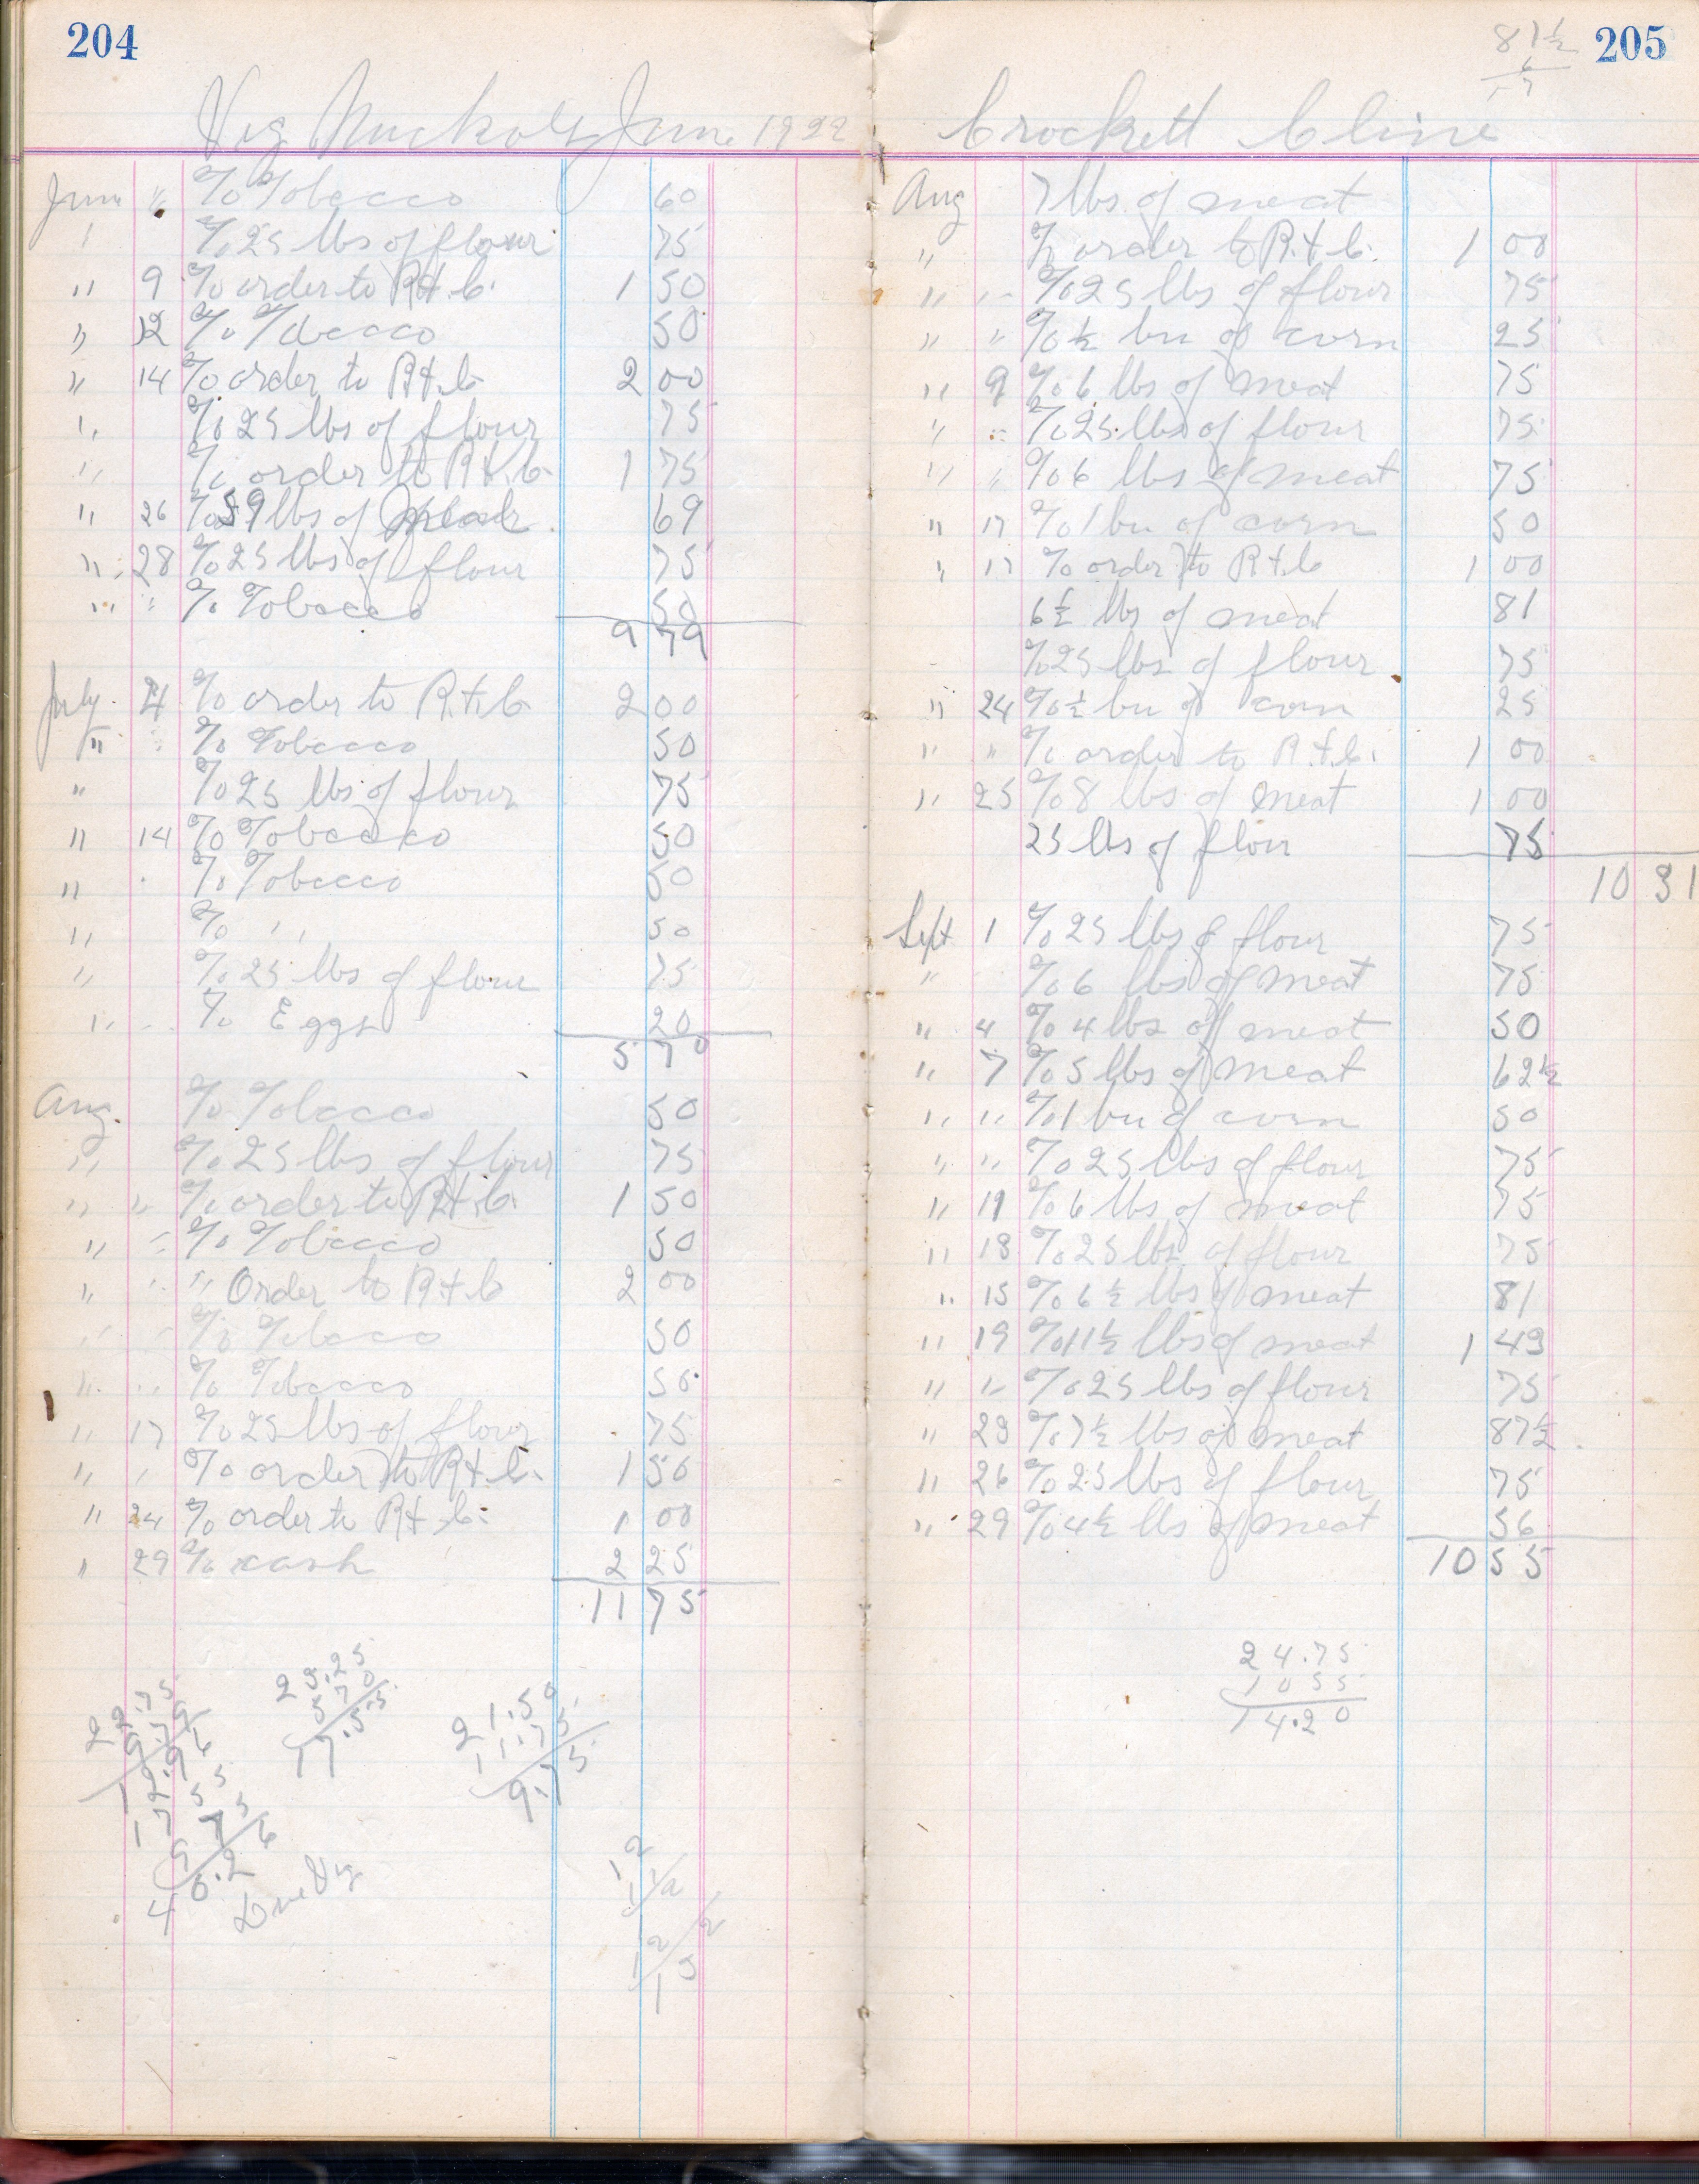 204
June 1922
June " % Tobacco 60
% 25 lbs of flour 75
" 9 % order to R+.C. 1 50
" 12 % Tobacco 50
" 14 % order to R+.C. 2 00
" % 25 lbs of flour 75
" % order to R+.C. 1 75
" 26 % 59 lbs of 69
" 28 % 25 lbs of flour 75
" " % Tobacco 50
9 79
July 4 % order to R+.C. 2 00
" " % Tobacco 50
" % 25 lbs of flour 75
" 14 % Tobacco 50
" % Tobacco 50
" % " 50
" % 25 lbs of flour 75
" % Eggs 20
5 70
Aug. % Tobacco 50
" % 25 lbs of flour 75
" " % order to R+.C. 1 50
" " % Tobacco 50
" " " Order to R+C 2 00
" " % Tobacco 50
" " % Tobacco 50
" 17 % 25 lbs of flour 75
" " % order to R+.C. 1 50
" 24 % order to R+.C. 1 00
" 29 % cash 2 25
11 75
22.75
9.79
12.96
17 55
9 75
40.26
Due Vig
23.25
5 70
17.55
21.50
11.75
9.75
205
87 1/2
Crockett Cline
Aug 7 lbs of meat
" % order to R.+.C. 1 00
" " % 25 lbs of flour 75
" " % 1/2 bu of corn 25
" 9 % 6 lbs of meat 75
" " % 25 lbs of flour 75
" " % 6 lbs of meat 75
" 17 % 1 bu of corn 50
" 17 % order to R+.C 1 00
6 1/2 lbs of meat 81
% 25 lbs of flour 75
" 24 % 1/2 bu of corn 25
" " % order to R.+.C. 1 00
" 25 % 8 lbs of meat 1 00
25 lbs of flour 75
10 31
Sept 1 % 25 lbs of flour 75
" % 6 lbs of meat 75
" 4 % 4 lbs of meat 50
" 7 % 5 lbs of meat 62 1/2
" " % 1 bu of corn 50
" " % 25 lbs of flour 75
" 11 % 6 lbs of meat 75
" 13 % 25 lbs of flour 75
" 15 % 6 1/2 lbs of meat 81
" 19 % 11 1/2 lbs of meat 1 43
" " % 25 lbs of flour 75
" 23 % 7 1/2 lbs of meat 87 1/2
" 26 % 25 lbs of flour 75
" 29 % 4 1/2 lbs of meat 56
10 55
24.75
10 55
14.20